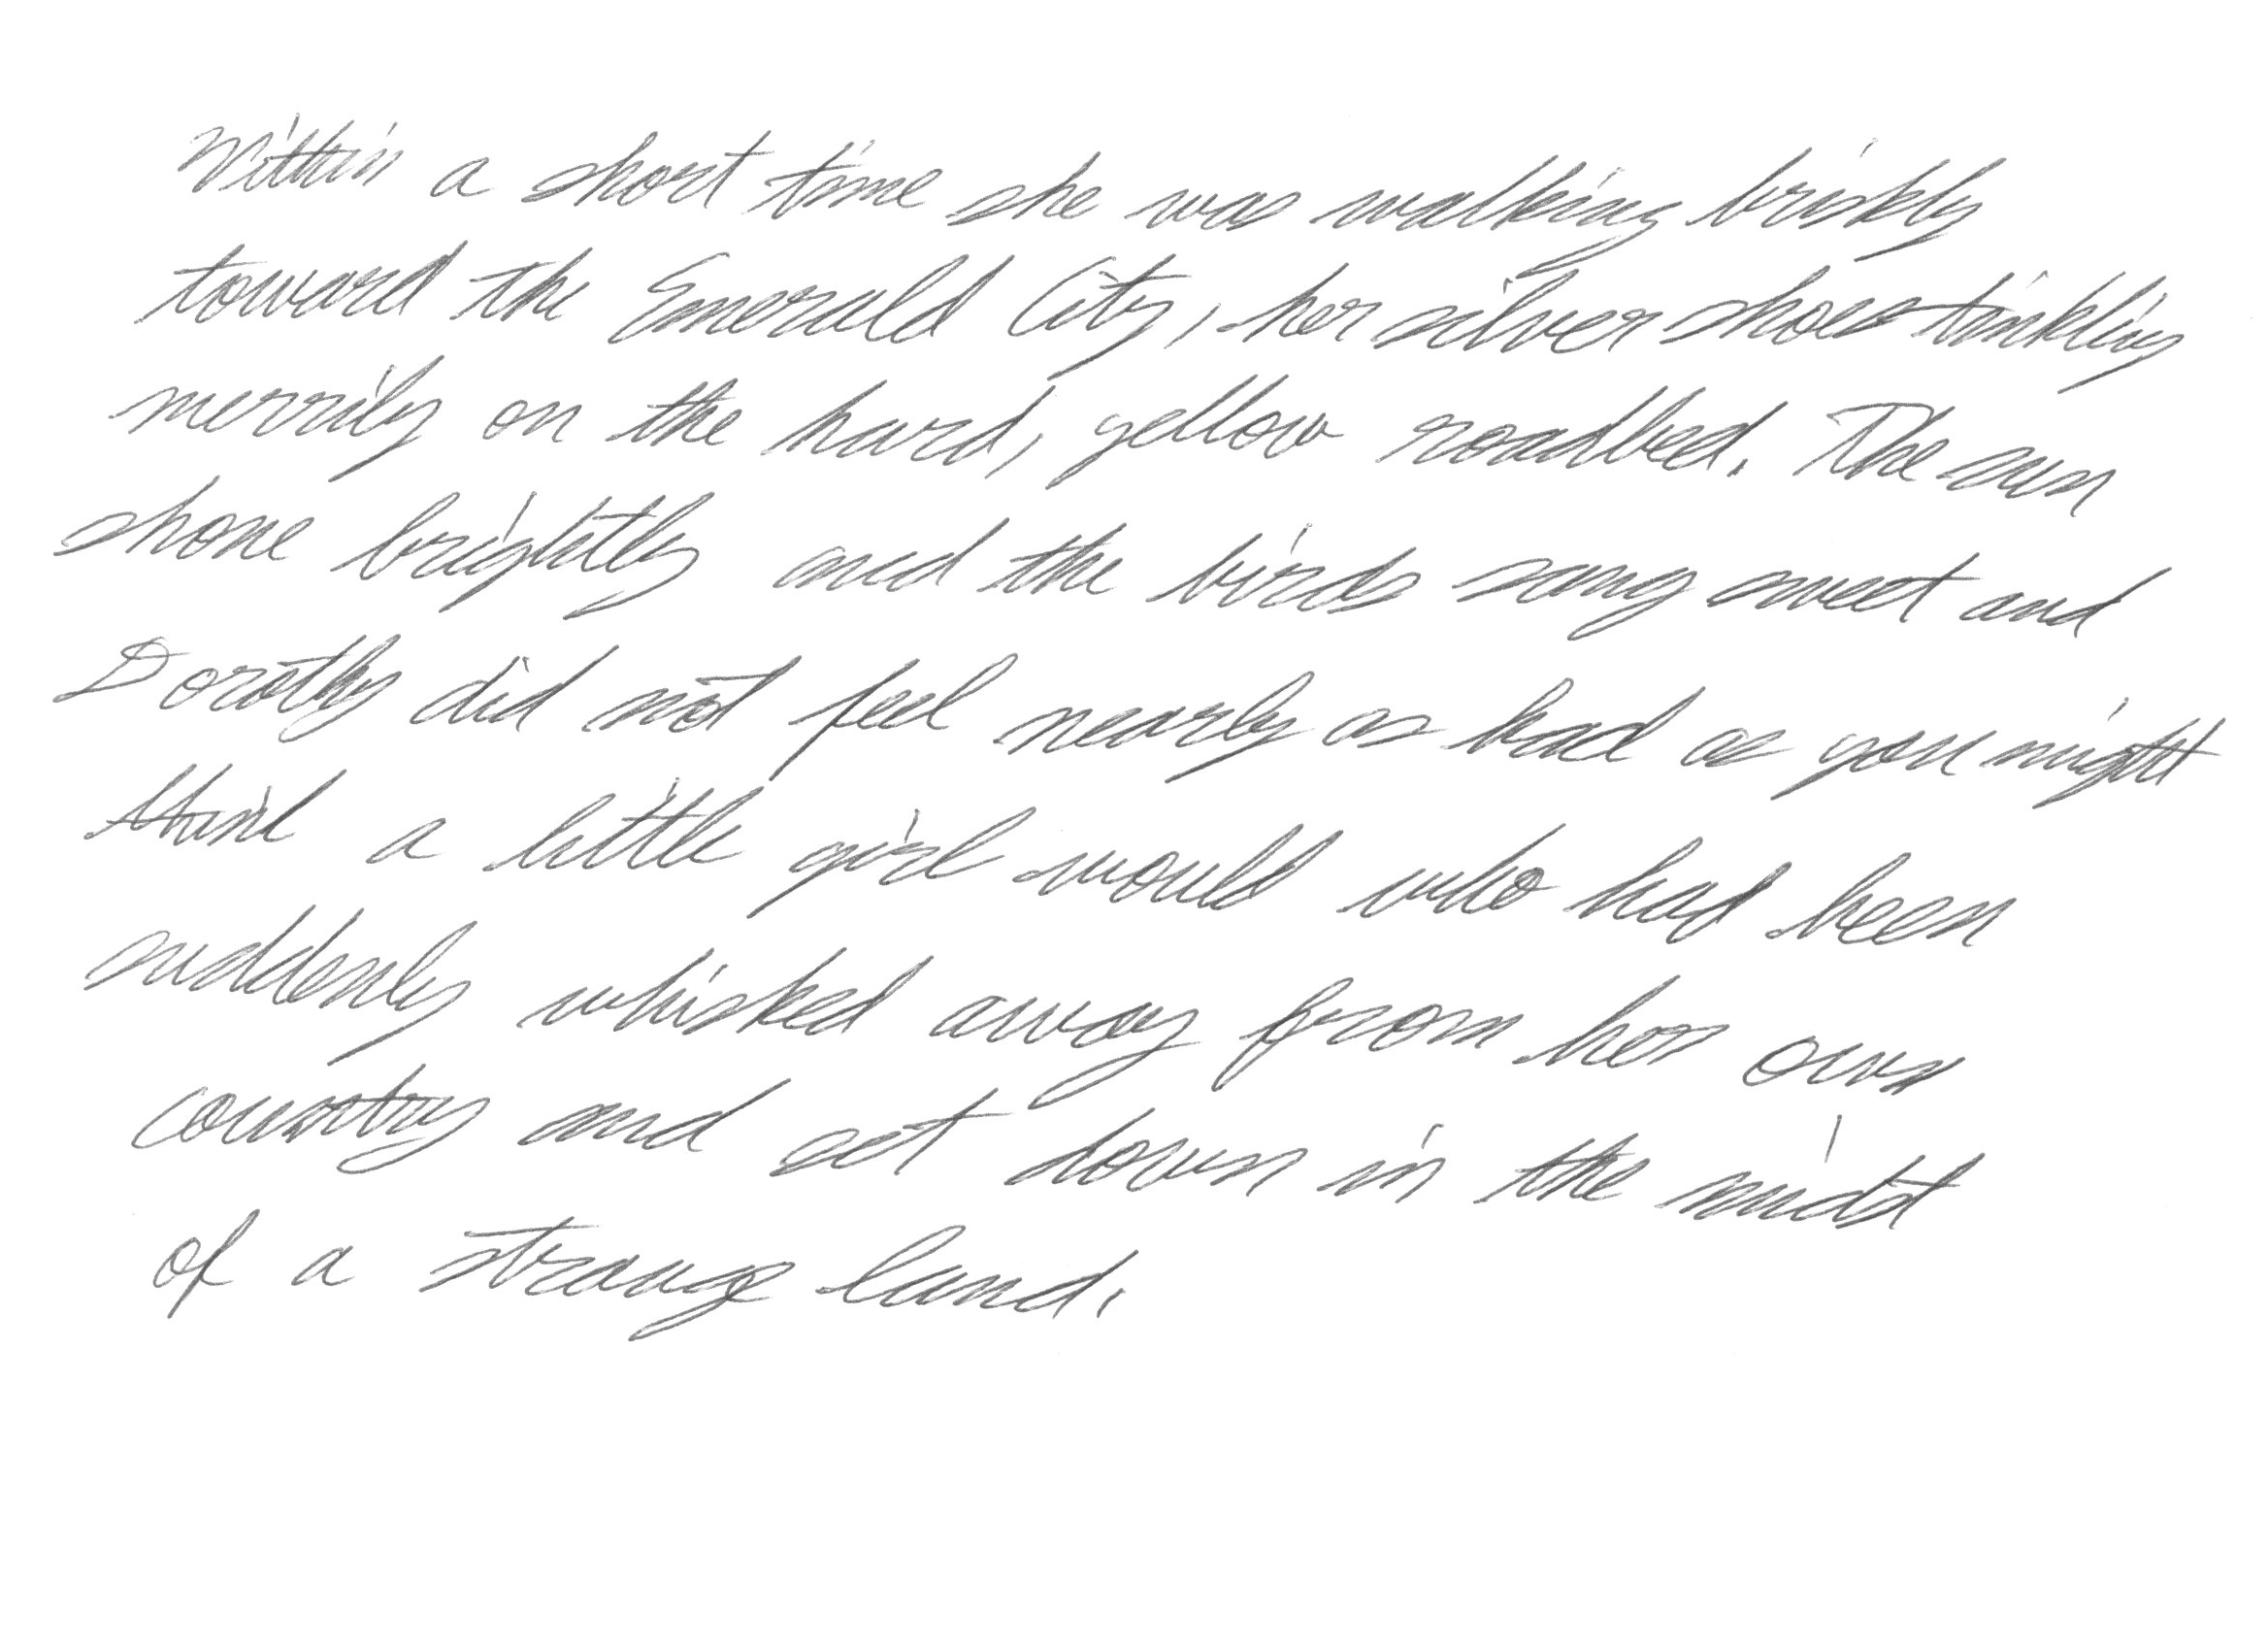 Within a short time she was walking briskly
toward the Emerald City, her silver shoes tinkling
merrily on the hard, yellow roadbed. The sun
shone brightly and the birds sang sweet and
Dorothy did not feel nearly as bad as you might
think a little girl would who had been
suddenly whisked away from her own
country and set down in the midst
of a strange land.